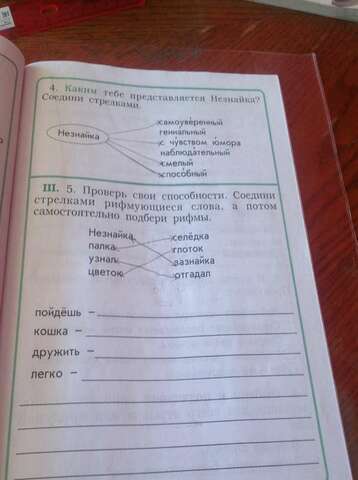 4. Каким тебе представляется Незнайка?
Соедини стрелками.
самоуве́ренный
гениальный
Незнайка
с чу́вством ю́мора
наблюда́тельный
смелый
спосо́бный
III. 5. Проверь свои способности. Соедини
стрелками рифмующиеся слова, а потом
самостоятельно подбери рифмы.
Незнайка селёдка
палка глоток
узнал зазнайка
цветок отгадал
пойдёшь –
кошка –
дружить –
легко –